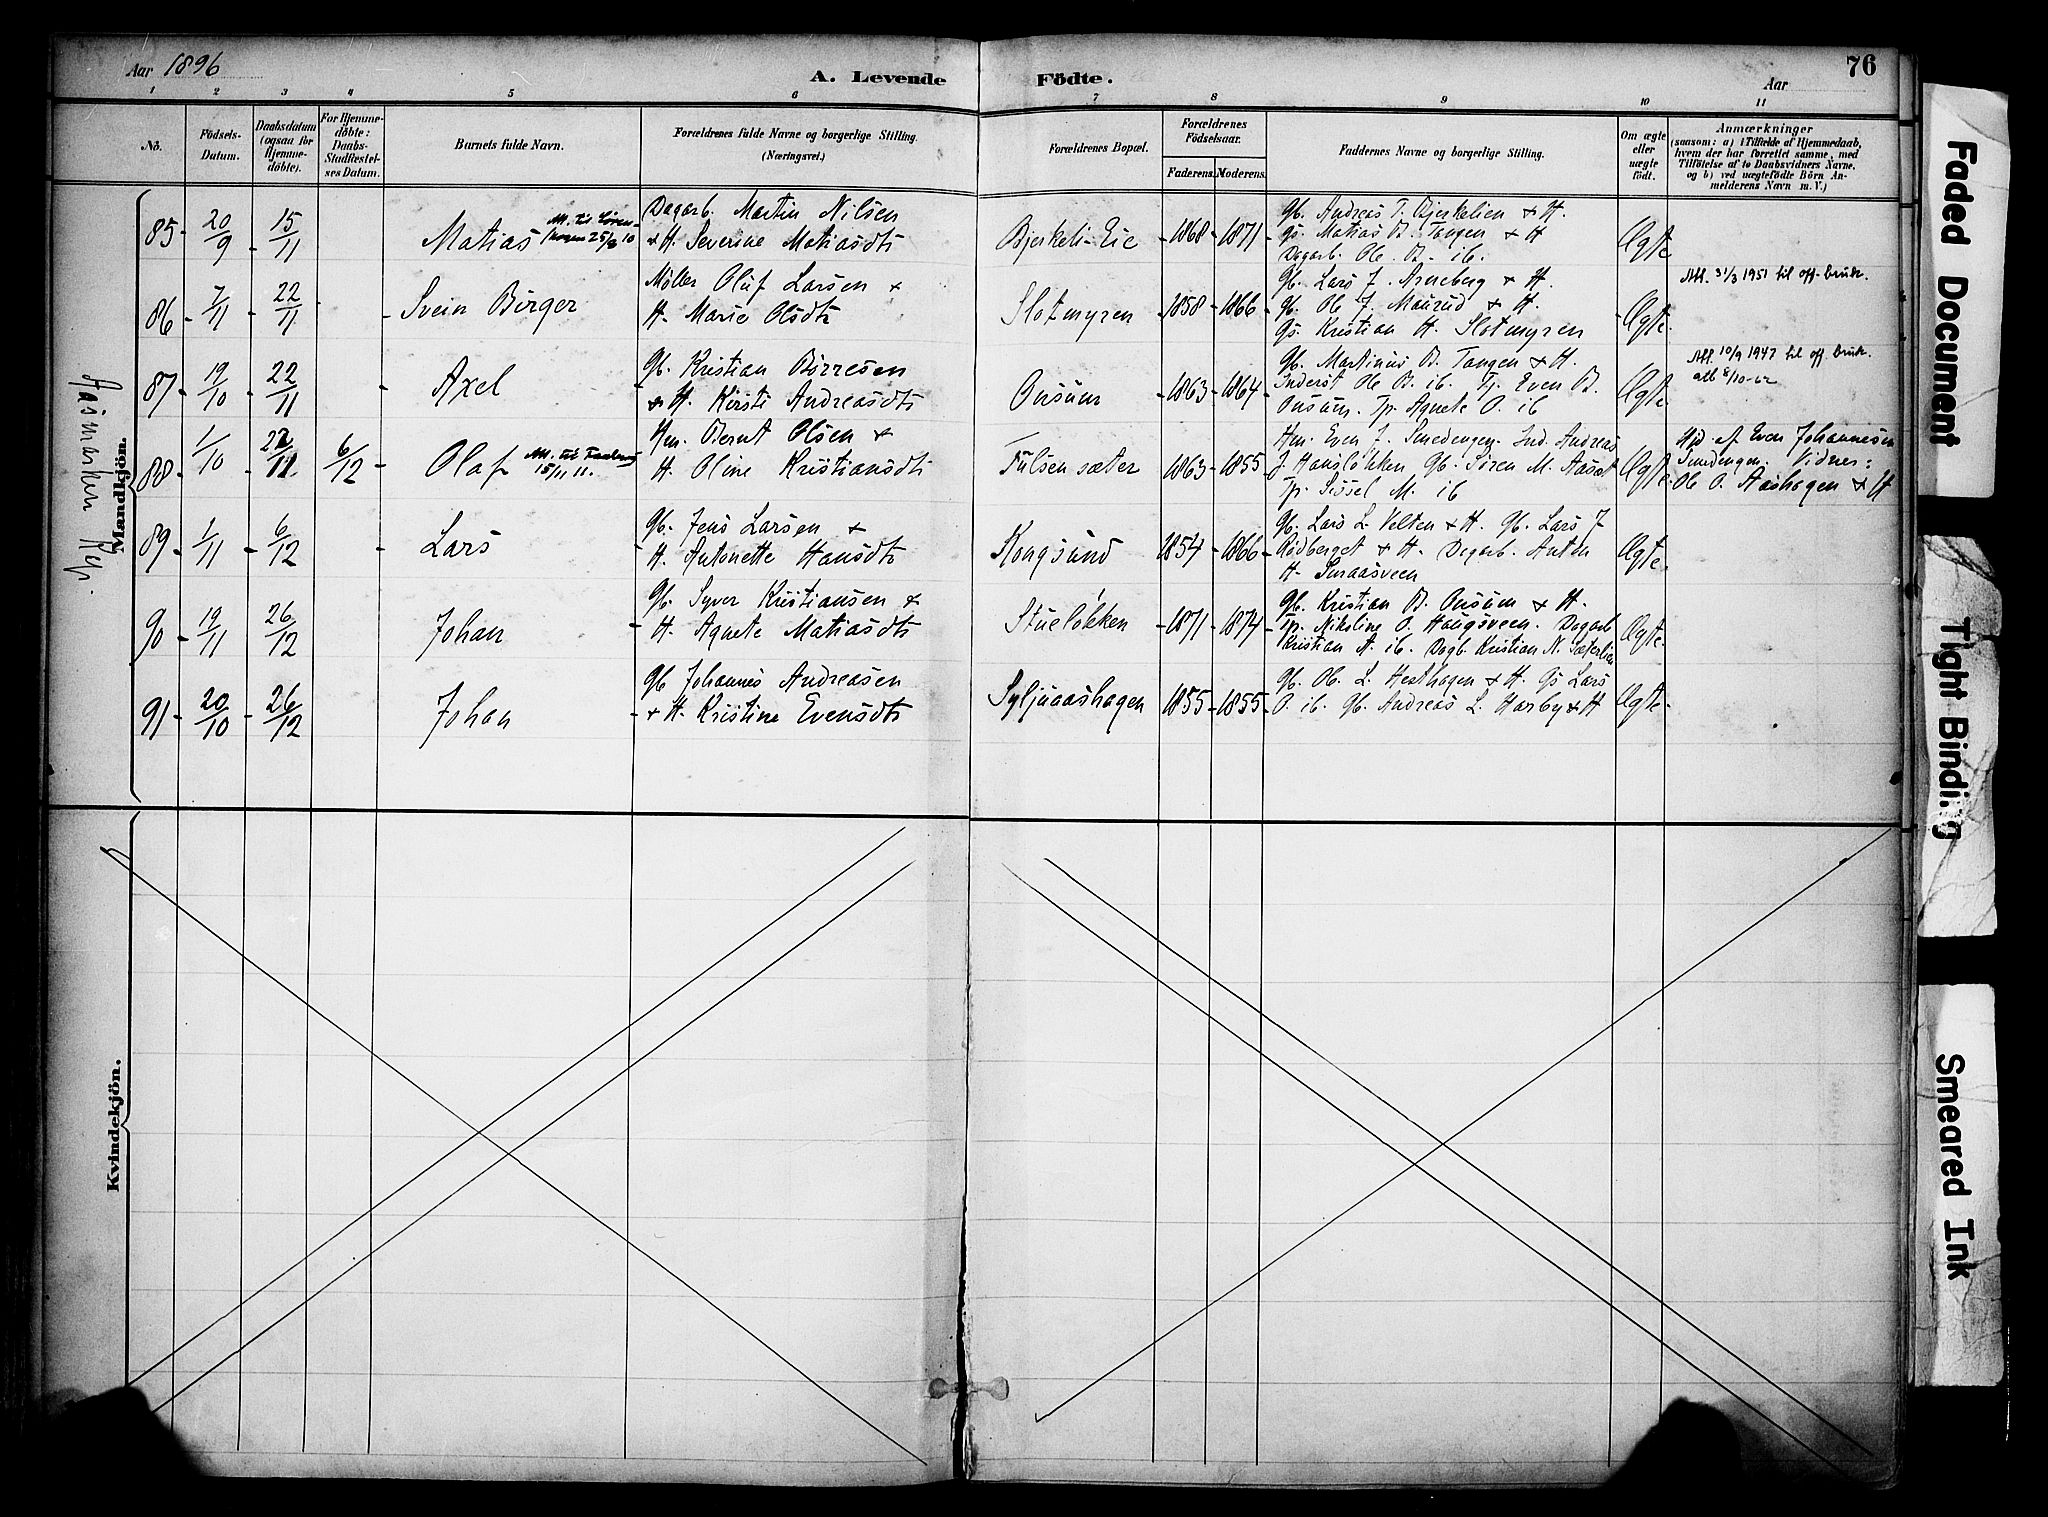 Aar 1896
A. Levende Födte.
Aar
76
1 2 3 4 5 6 7 8 9 10 11
No.
Födsels-Datum.
Daabsdatum (ogsaa for Hjemmedöbte).
For Hjemmedöbte: Daabs-Stadfæstelses Datum.
Barnets fulde Navn.
Forældrenes fulde Navne og borgerlige Stilling. (Næringsvei.)
Forældrenes Bopæl.
Forældrenes Födselsaar.
Faderens.
Moderens.
Faddernes Navne og borgerlige Stilling.
Om ægte eller uægte födt.
Anmærkninger
(saasom: a) i Tilfælde af Hjemmedaab, hvem der har forrettet samme, med Tilföielse af to Daabsvidners Navne, og b) ved uægtefödte Börn Anmelderens Navn m. V.)
Mandkjön.
Aasmarken
85 - 20/9 - 15/11 Matias 25/8 10
Dagarb. Martin Nilsen
+ H. Severine Matiasdtr
Bjerkeli-Eie - 1868 - 1871
Gb. Andreas T. Bjerkelien + H.
Gs. Matias B. Tangen + H
Dagarb. Ole B. ib.
Ægte
86 - 7/11 - 22/11 - Svein Birger
Møller Oluf Larsen +
H. Marie Olsdtr
Slotmyren 1858 - 1866
Gb. Lars J. Arneberg + H.
Gb. Ole J. Maurud + H.
Gs. Kristian H. Slotmyren
Ægte
Att. 31/3 1951 til off. bruk.
87 - 19/10 - 22/11 - Axel
Gb. Kristian Börresen
+ H. Kirsti Andreasdtr
Onsum - 1863 - 1864
Gb. Martinus B. Tangen + H.
Inderst Ole B. ib. Tj. Even B.
Onsum. Tp. Agnete O. ib
Ægte
Att. 10/9 1947 til off. bruk.
att 8/10-62
88 - 1/10 22/11 6/12 - Olaf 15/11 11.
Hm. Bernt Olsen +
H. Oline Kristiansdtr
Fulsen sæter 1863 - 1855
Hm. Even J. Smedengen. Ind. Andreas
J. Hansløkken Gb. Søren M. Aaset
Tp. Sissel M. ib
Ægte
Hjd. af Even Johannesen
Smedengen. Vidner:
Ole O. Aashagen + H
89 - 1/11 - 6/12 - Lars
Gb. Jens Larsen +
H. Antonette Hansdtr
Kongsund 1854 - 1866
Gb. Lars L. Velten + H. Gb. Lars J
Rødberget + H. Dagarb. Anton
H. Smaasveen
Ægte
90 - 19/11 - 26/12 Johan
Gb. Syver Kristiansen +
H. Agnete Matiasdtr
Stueløkken - 1871 - 1874
Gb. Kristian B. Onsum + H.
Tp. Nikoline O. Haugsveen. Dagarb
Kristian A. ib. Dagb. Kristian N. Sæterlien
Ægte
91 - 20/10 - 26/12 Johan
Gb Johannes Andreasen
+ H. Kristine Evensdtr
Syljuaashagen 1855 - 1855
Gb. Ole L. Hesthagen + H. Gs Lars
O. ib. Gb. Andreas L. Harby + H
Ægte
Kvindekjön.
Faded Document
Tight Binding
Smeared Ink